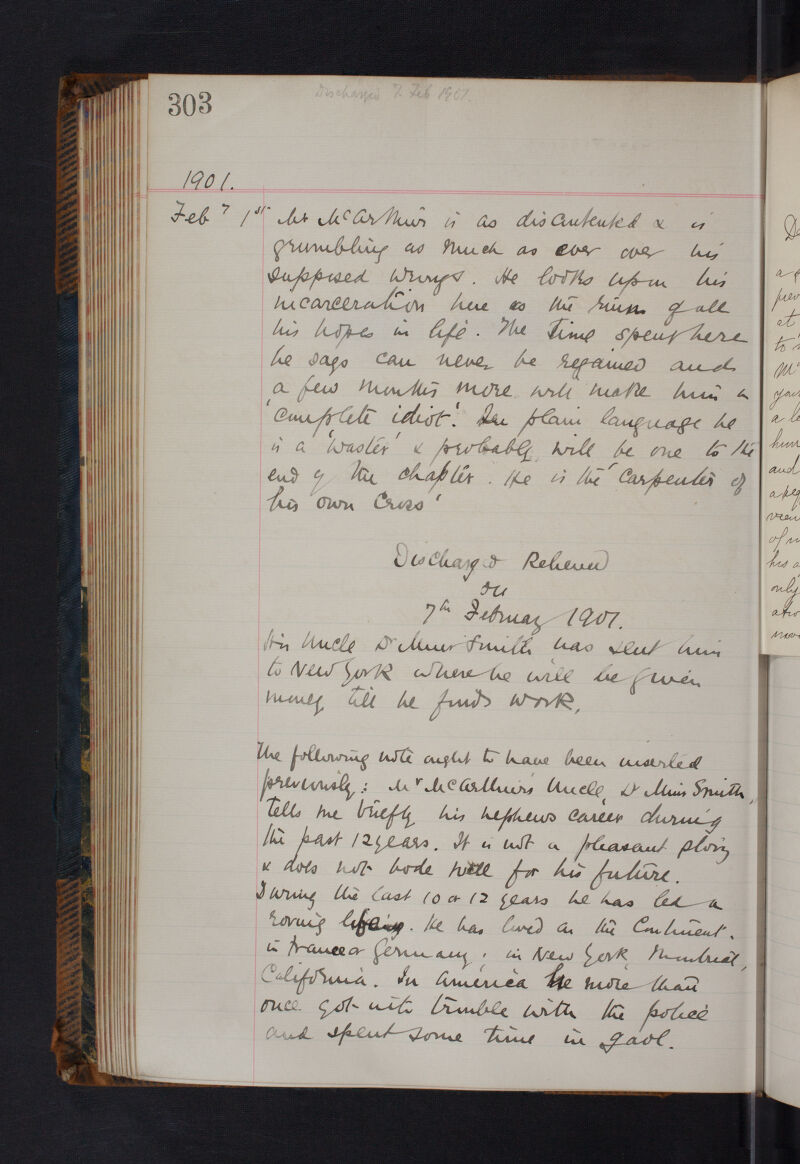 303
Discharged 7 Feb 1901.
1901.
Feby 1st Mr McArthur is as discontented & is
grumbling as much as ever over his
supposed wrongs. He looks upon his
incarceration here as the ruin of all
his hopes in life. The time spent here
he says can never be regained and
a few months more will make him a
'complete idiot'. In plain language he
is a 'waster' & probably will be one to the
end of the chapter. He is the 'Carpenter of
his own Cross'
Discharged Relieved
on
7th February 1901.
His Uncle Dr Muir Smith has sent him
to New York where he will be given
money till he finds work.
The following note ought to have been inserted
previously: Mr McArthur's Uncle, Dr Muir Smith,
tells me briefly his nephews career during
the past 12 years. It is not a pleasant story
& does not bode well for his future.
During the last 10 or 12 years he has led a
roving life. He has lived on the Continent.
in France or Germany, in New York, Montreal,
California. In America he more than
once got into trouble with the police
and spent some time in gaol.